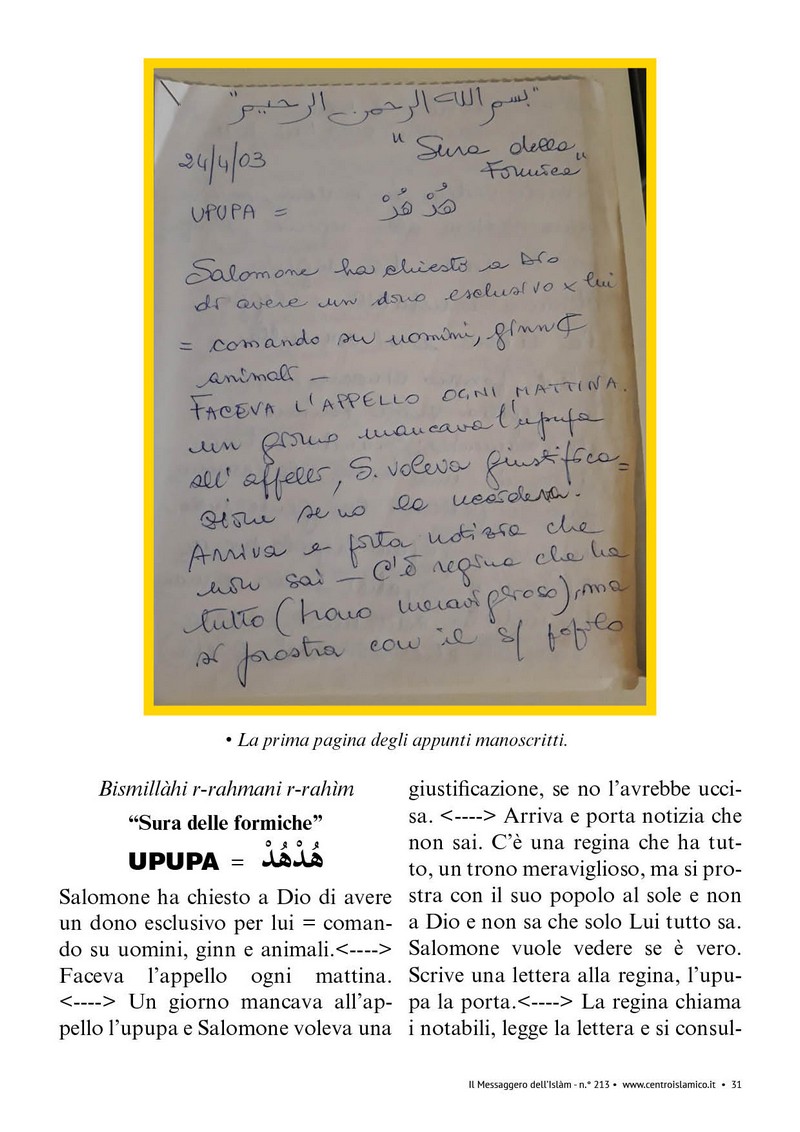 "بسم الله الرحمن الرحيم"
24/4/03
"Sura della
Formica"
UPUPA = هُدْ هُدْ
Salomone ha chiesto a Dio
di avere un dono esclusivo x lui
= comando su uomini, ginn E
animali —
FACEVA L'APPELLO OGNI MATTINA.
un giorno mancava l'upupa
all'appello, S. voleva giustifica=
zione se no la uccideva.
Arriva e porta notizia che
non sai — C'è regina che ha
tutto (trono meraviglioso), ma
si prostra con il s/ popolo
• La prima pagina degli appunti manoscritti.
Bismillàhi r-rahmani r-rahìm
“Sura delle formiche”
UPUPA = هُدْهُدْ
Salomone ha chiesto a Dio di avere
un dono esclusivo per lui = coman-
do su uomini, ginn e animali.<---->
Faceva l’appello ogni mattina.
<----> Un giorno mancava all’ap-
pello l’upupa e Salomone voleva una
giustificazione, se no l’avrebbe ucci-
sa. <----> Arriva e porta notizia che
non sai. C’è una regina che ha tut-
to, un trono meraviglioso, ma si pro-
stra con il suo popolo al sole e non
a Dio e non sa che solo Lui tutto sa.
Salomone vuole vedere se è vero.
Scrive una lettera alla regina, l’upu-
pa la porta.<----> La regina chiama
i notabili, legge la lettera e si consul-
Il Messaggero dell’Islàm - n.° 213 • www.centroislamico.it • 31